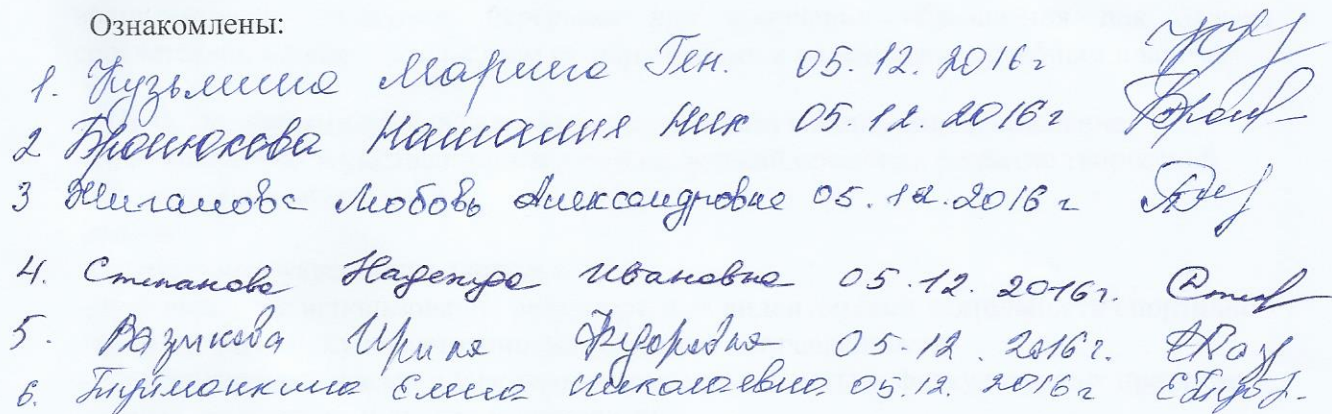 Ознакомлены:
1. Кузьмина Марина Ген. 05.12.2016г
2 Наталия Ник 05.12.2016г
3 Жиганова Любовь Александровна 05.12.2016г
4. Степанова Надежда Ивановна 05.12.2016г.
5. Вазыкова Ирина Федоровна 05.12.2016г.
6. Елена Николаевна 05.12.2016г